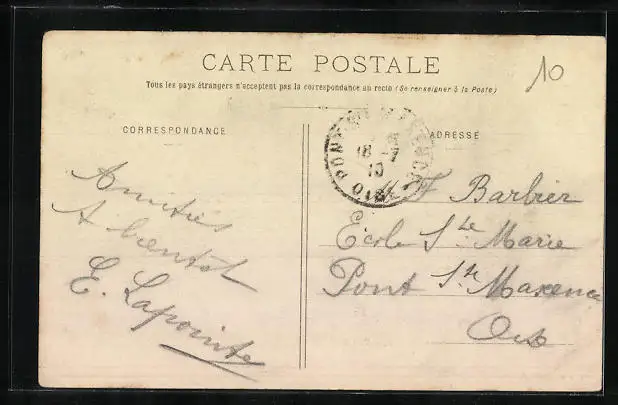 CARTE POSTALE
10
Tous les pays étrangers n'acceptent pas la correspondance au recto (Se renseigner à la Poste)
CORRESPONDANCE
ADRESSE
Amitiés
A bientôt
E. Lapointe
F Barbier
Ecole Ste Marie
Pont Ste Maxence
Oise